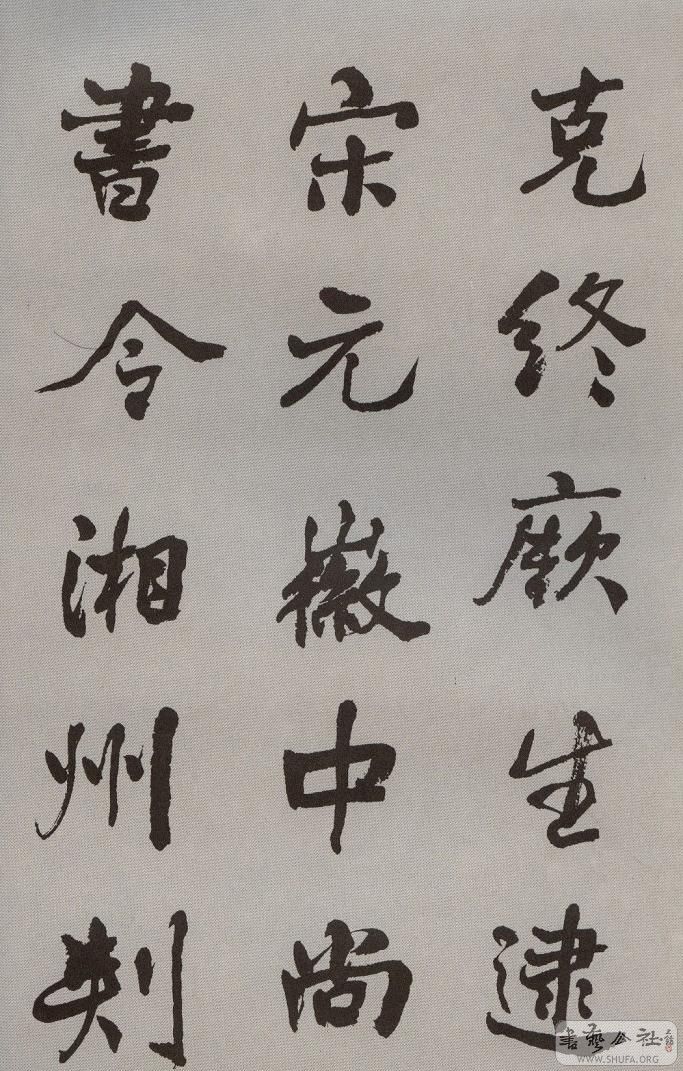 克終厥生逮
宋元徽中尚
書令湘州刺
書藝公社
WWW.SHUFA.ORG